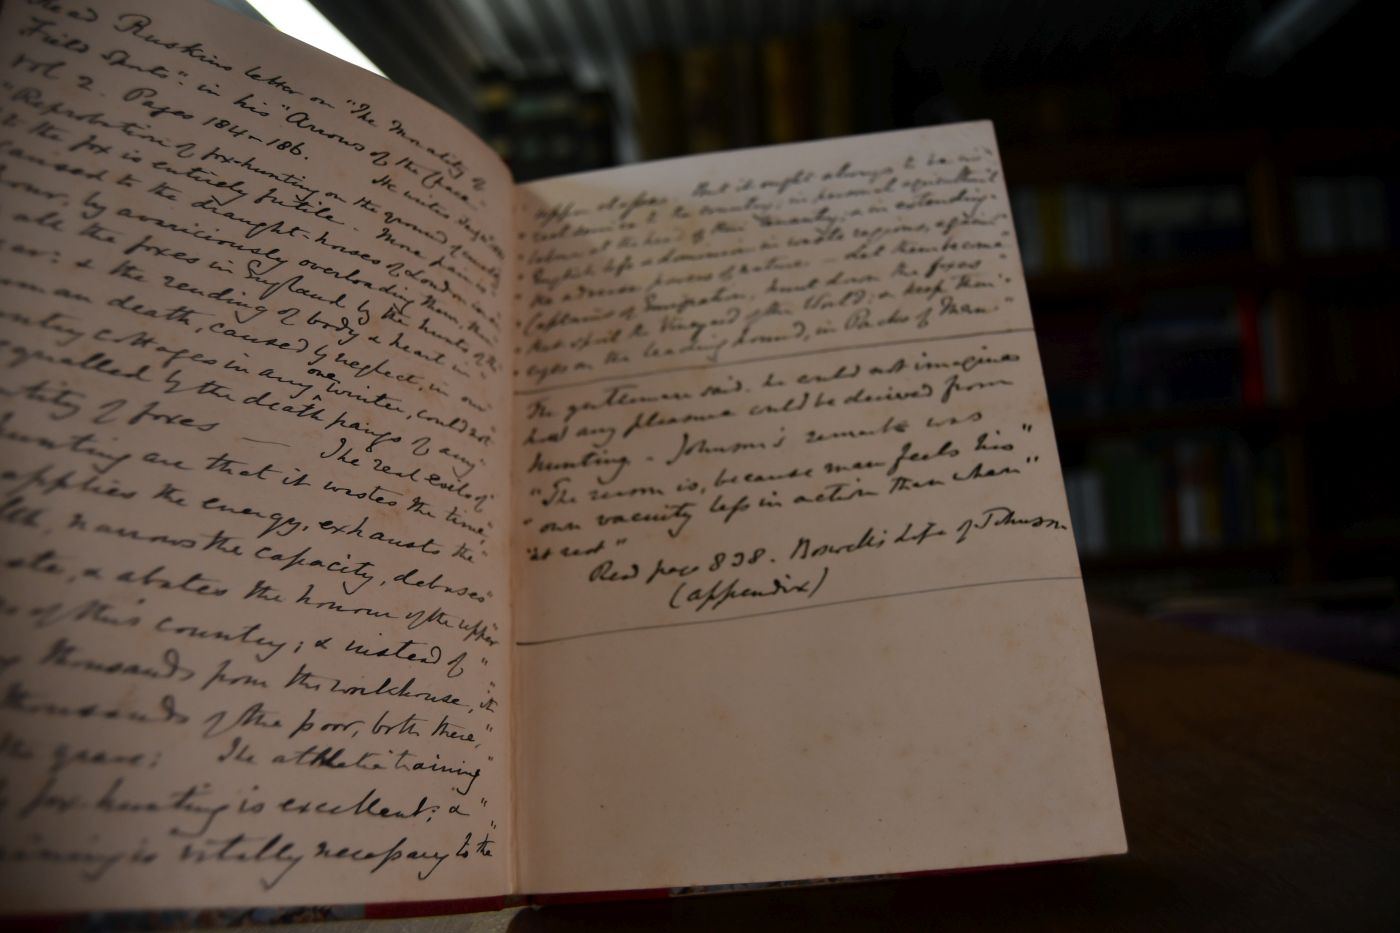 Read Ruskins letter on "The Morality of
Field Sports" in his "Arrows of the Chace"
vol 2. Pages 184-186. He writes
"Reprobation of fox-hunting on the ground of cruelty
to the fox is entirely futile. More pain is
caused to the draught-horses of London in an
hour, by avariciously overloading them, than
all the foxes in England by the hunts of the
year: & the rending of body & heart in
human death, caused by neglect, in our
country cottages in any one winter, could not
equalled by the death pangs of any
quantity of foxes — The real evils of
hunting are that it wastes the time,
applies the energy, exhausts the
narrows the capacity, debases
& abates the honour of the upper
of this country; & instead of
thousands from the workhouse, it
thousands of the poor, both there,
the grave: The athletic training
fox-hunting is excellent; &
training is vitally necessary to the
upper classes. But it ought always to be in
real service to the country; in personal agricultural
labour at the head of their tenantry; & in extending
English life & dominion in waste regions, against
the adverse powers of nature. — Let them become
Captains of Emigration, hunt down the foxes
that spoil the Vineyard of the World; & keep their
eyes on the leading hound, in Packs of Men."
The gentleman said. he could not imagine
how any pleasure could be derived from
hunting - Johnson's remark was
"The reason is, because man feels his"
"own vacuity less in action than when"
"at rest"
Read page 838. Boswell's Life of Johnson
(appendix)